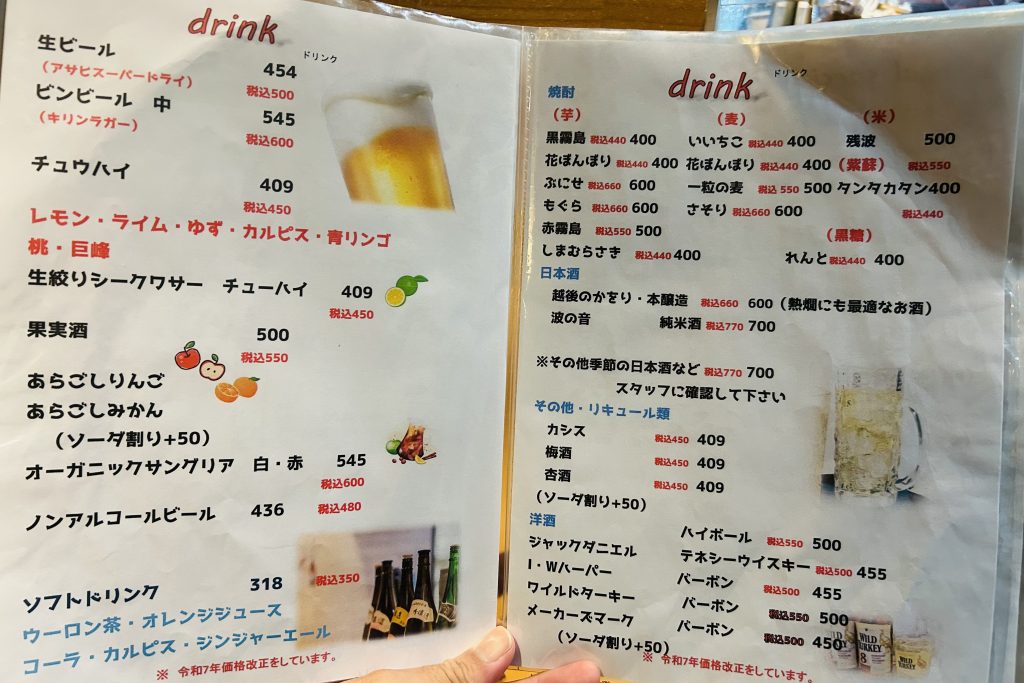 drink
ドリンク
生ビール 454
(アサヒスーパードライ) 税込500
ビンビール 中 545
(キリンラガー) 税込600
チュウハイ 409
税込450
レモン・ライム・ゆず・カルピス・青リンゴ
桃・巨峰
生絞りシークワサー チューハイ 409
税込450
果実酒 500
税込550
あらごしりんご
あらごしみかん
(ソーダ割り+50)
オーガニックサングリア 白・赤 545
税込600
ノンアルコールビール 436 税込480
ソフトドリンク 318 税込350
ウーロン茶・オレンジジュース
コーラ・カルピス・ジンジャーエール
※ 令和7年価格改正をしています。
drink
ドリンク
焼酎
(芋) (麦) (米)
黒霧島 税込440 400 いいちこ 税込440 400 残波 500
花ぼんぼり 税込440 400 花ぼんぼり 税込440 400 (紫蘇) 税込550
ぶにせ 税込660 600 一粒の麦 税込550 500 タンタカタン400
もぐら 税込660 600 さそり 税込660 600 税込440
赤霧島 税込550 500 (黒糖)
しまむらさき 税込440 400 れんと 税込440 400
日本酒
越後のかをり・本醸造 税込660 600 (熱燗にも最適なお酒)
波の音 純米酒 税込770 700
※その他季節の日本酒など 税込770 700
スタッフに確認して下さい
その他・リキュール類
カシス 税込450 409
梅酒 税込450 409
杏酒 税込450 409
(ソーダ割り+50)
洋酒 ハイボール 税込550 500
ジャックダニエル テネシーウイスキー 税込500 455
I・Wハーパー バーボン 税込500 455
ワイルドターキー バーボン 税込550 500
メーカーズマーク バーボン 税込500 450
(ソーダ割り+50)
WILD TURKEY 8
WILD TURKEY
※ 令和7年価格改正をしています。